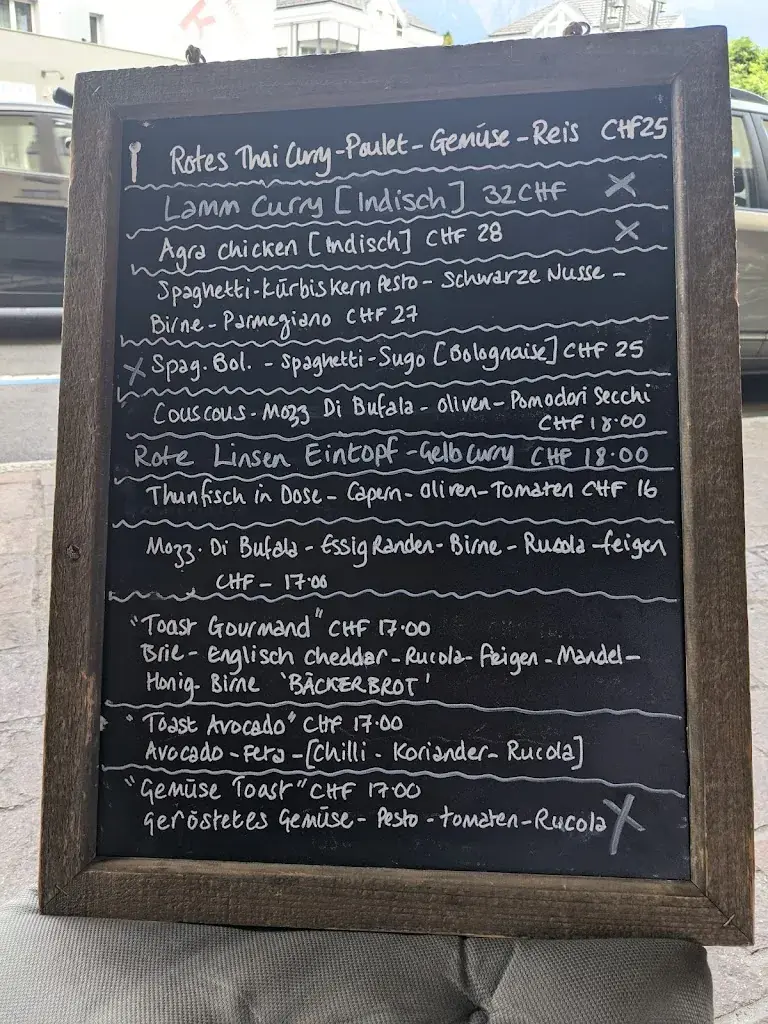 Rotes Thai Curry-Poulet-Gemüse-Reis CHF25
Lamm Curry [Indisch] 32CHF X
Agra chicken [Indisch] CHF 28 X
Spaghetti-kürbiskern Pesto- Schwarze Nusse -
Birne- Parmegiano CHF 27
X Spag. Bol. - Spaghetti-Sugo [Bolognaise] CHF 25
Couscous-Mozz Di Bufala - oliven-Pomodori Secchi
CHF 18.00
Rote Linsen Eintopf -Gelb Curry CHF 18.00
Thunfisch in Dose - Capern- Oliven-Tomaten CHF 16
Mozz. Di Bufala - Essig Randen- Birne - Rucola -feigen
CHF - 17.00
"Toast Gourmand" CHF 17.00
Brie- Englisch Cheddar-Rucola- Feigen- Mandel-
Honig- Birne 'BÄCKERBROT'
"Toast Avocado" CHF 17.00
Avocado-Feta-[Chilli - Koriander- Rucola]
"Gemüse Toast" CHF 17.00
geröstetes Gemüse- Pesto -tomaten-Rucola X